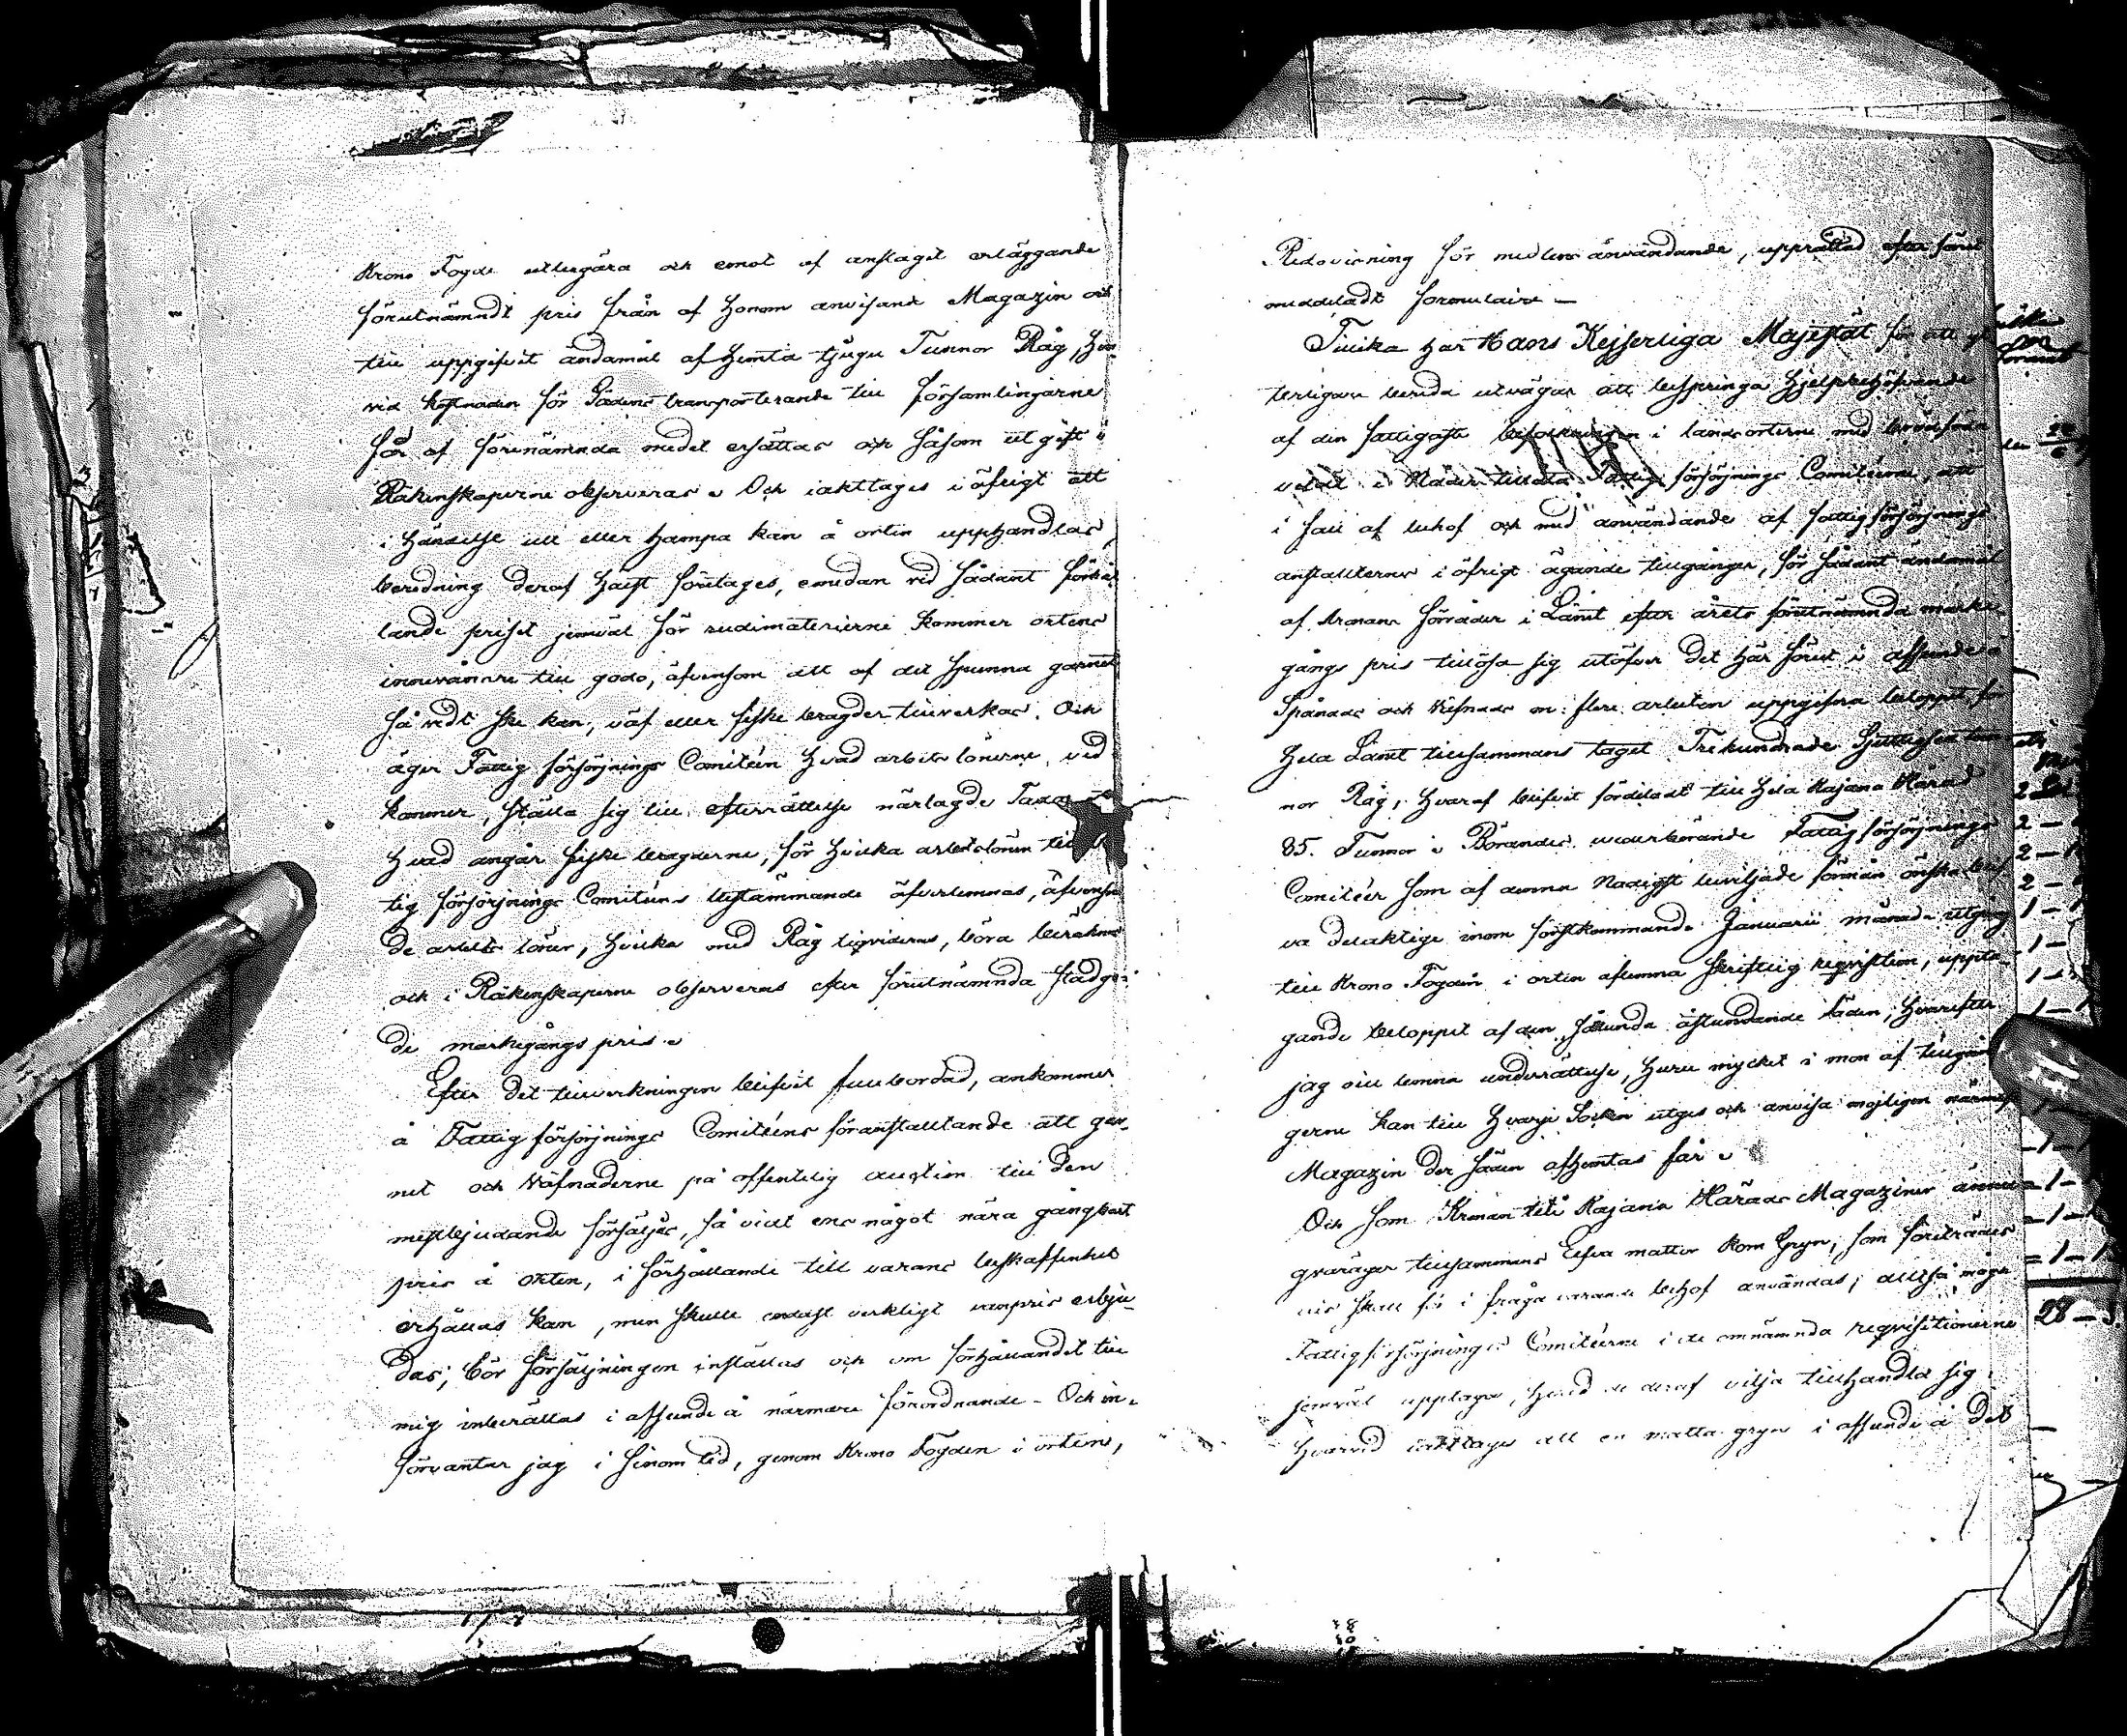 Krono Fogde utbegära och emot af anslaget erläggande
förutnämndt pris från af honom anvisande Magazin och
till uppgifvit ändamål afhemta tjugu Tunnor Råg, hvar
vid kostnaden för Sädens transporterande till församlingarne
får af förenämnda medel ersättas och såsom utgift i
Räkenskaperne observeras. Och iakttages i öfrigt att
i händelse ull eller hampa kan å orten upphandlas,
beredning deraf hälst företages, emedan vid sådant förhål
lande priset jemväl för rudimaterierne kommer ortens
innevånare till godo, äfvensom att af det spunna garnet
så vidt ske kan, väf eller fiske bragder tillverkas. Och
äger Fattig försörjnings Comitéen hvad arbets lönerne vid
kommer, ställa sig till efterrättelse närlagde Taxa
hvad angår fiske bragderne, för hvilka arbetslönen till
tig försörjnings Comitéens bestämmande öfverlemnas, äfvensom
de arbets löner, hvilka med Råg liqvideras, böra beräknas
och i Räkenskaperne observeras efter förutnämnda stadga-
de markegångs pris.
Efter det tillverkningen blifvit fullbordad, ankommer
å Fattig försörjnings Comitéens föranstaltande att gar-
net och Väfnaderne på offentelig auction till den
mestbjudande försäljes, så vidt ens något nära gångbart
pris å orten, i förhållande till varans beskaffenhet
erhållas kan, men skulle endast verkligt vanpris erbju-
das; bör försäljningen inställas och om förhållandet till
mig inberättas i afseende å närmare förordnande. Och in-
förväntar jag i sinom tid, genom Krono Fogden i orten,
Redovisning för medlens användande, upprättad efter förut
meddeladt formulaire –
Tillika har Hans Kejserliga Majestät för att yt
terligare bereda utvägar att bespringa hjelpbehöfvande
af den fattigaste befolkningen i landsorterne med brödföda
velat i Nåder tillåta Fattig försörjnings Comitéerne, att
i fall af behof och med användande af fattigförsörjnings
anstalternes i öfrigt ägande tillgångar, för sådant ändamål
af Kronans förråder i Länet efter årets förutnämnda marke-
gångs pris tillösa sig utöfver det här förut i afseende å
Spånads och Väfnads m: flere arbeten uppgifna beloppet för
hela Länet tillsammans taget Trehundrade Sjuttiofem tun
nor Råg, hvaraf blifvit fördeladt till hela Kajana Härad
85. Tunnor. Börandes vederbörande Fattigförsörjnings
Comitéer som af denna Nådigst beviljade förmån önska blif
va delaktige inom förstkommande Januarii månads utgång
till Krono Fogden i orten aflemna skriftelig reqvisition, uppta-
gande beloppet af den sålunda åstundande Säden, hvarefter
jag vill lemna underrättelse, huru mycket i mon af tillgån
gerne kan till hvarje Socken utges och anvisa möjligen närmaste
Magazin der säden afhemtas får.
Och som Kronan till Kajana Härads Magaziner ännu
qvaräger tillsammans Elfva mattor Korn Gryn, som företrädes
vis skall för i fråga varande behof användas; alltså må
Fattigförsörjnings Comitéerne i de omnämnda reqvisitionerne
jemväl upptaga, hvad de deraf vilja tillhandla sig
hvarvid iakttages att en matta gryn i afseende å det
28 –